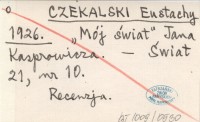 CZEKALSKI Eustachy
1926. "Mój świat" Jana
Kasprowicza. – Świat
21, nr 10.
Recenzja.